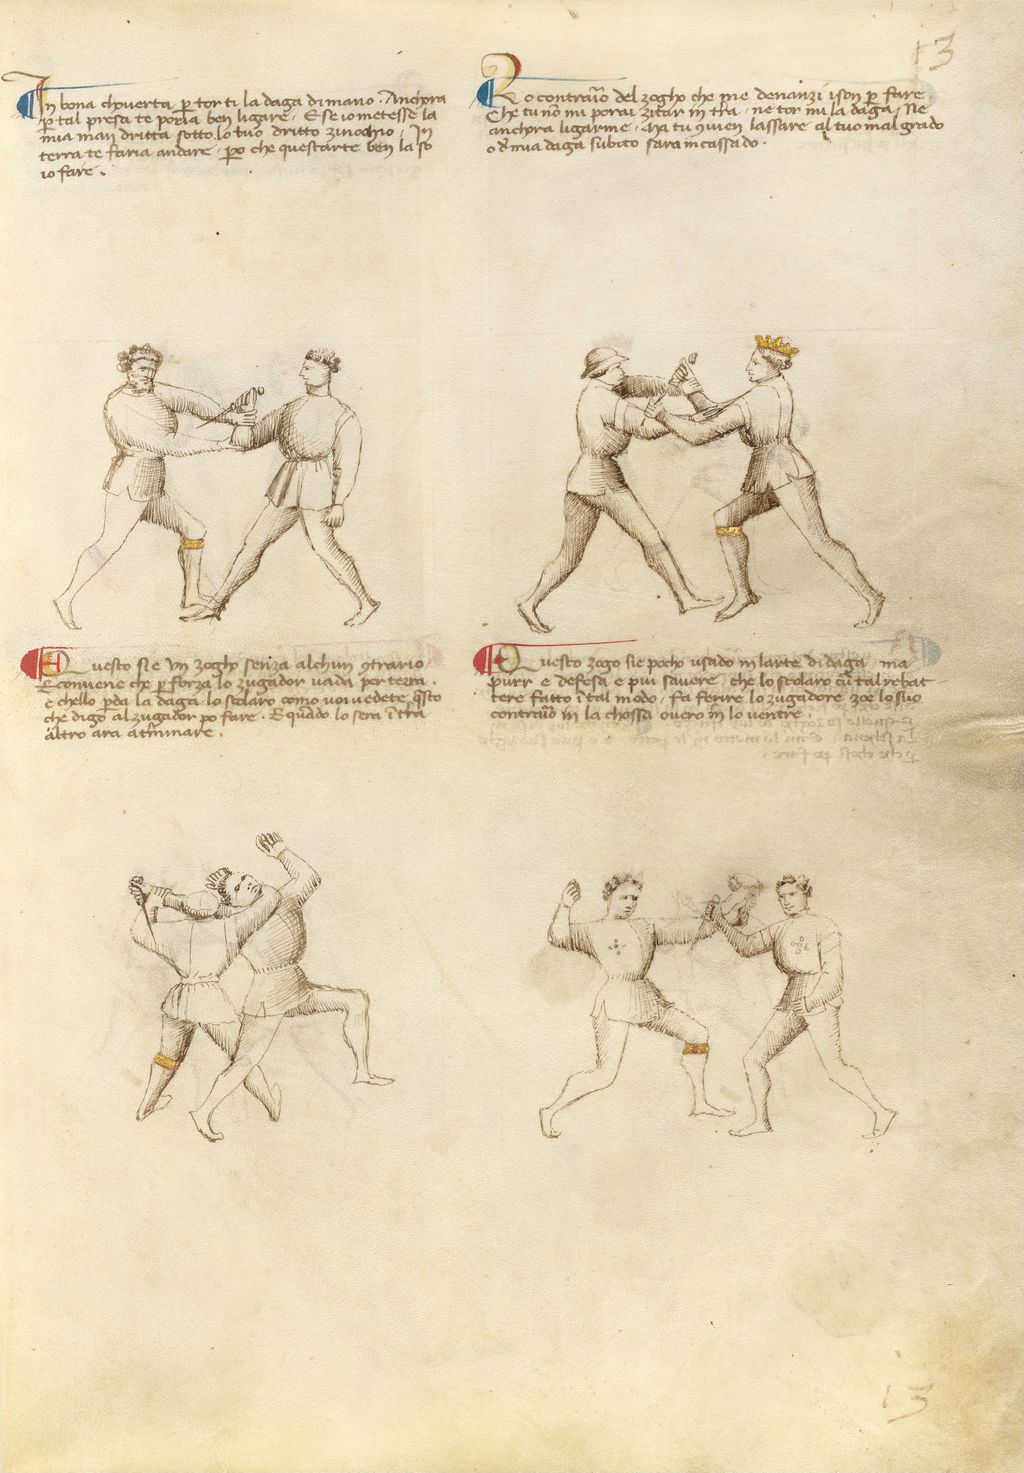 13
In bona choverta per torti la daga di mano. Anchora
per tal presa te poria ben ligare. E se io metesse la
mia man dritta sotto lo tuo dritto zinochio, In
terra te faria andare, però che quest'arte ben la so
io fare.
Lo contrario del zogho che me denanzi i son per fare.
Che tu non mi porai zitar in terra, ne tor mi la daga, Ne
anchora ligarme. Ma tu convien lassare al tuo mal grado
o de mia daga subito sara incassado.
Questo si e un zogho senza alchun contrario
E conviene che per forza lo zugador vada per terra.
e ch'ello perda la daga lo scolaro como voi vedete questo
che digo al zugador po fare. E quando lo sera in terra
altro ara a terminare.
Questo zogo si e pocho usado in l'arte di daga, ma
purr e defesa e piui savere, che lo scolaro cum tal rebat
tere fatto in tal modo, fa ferire lo zugadore zoe lo suo
contrario in la chossa overo in lo ventre.
13